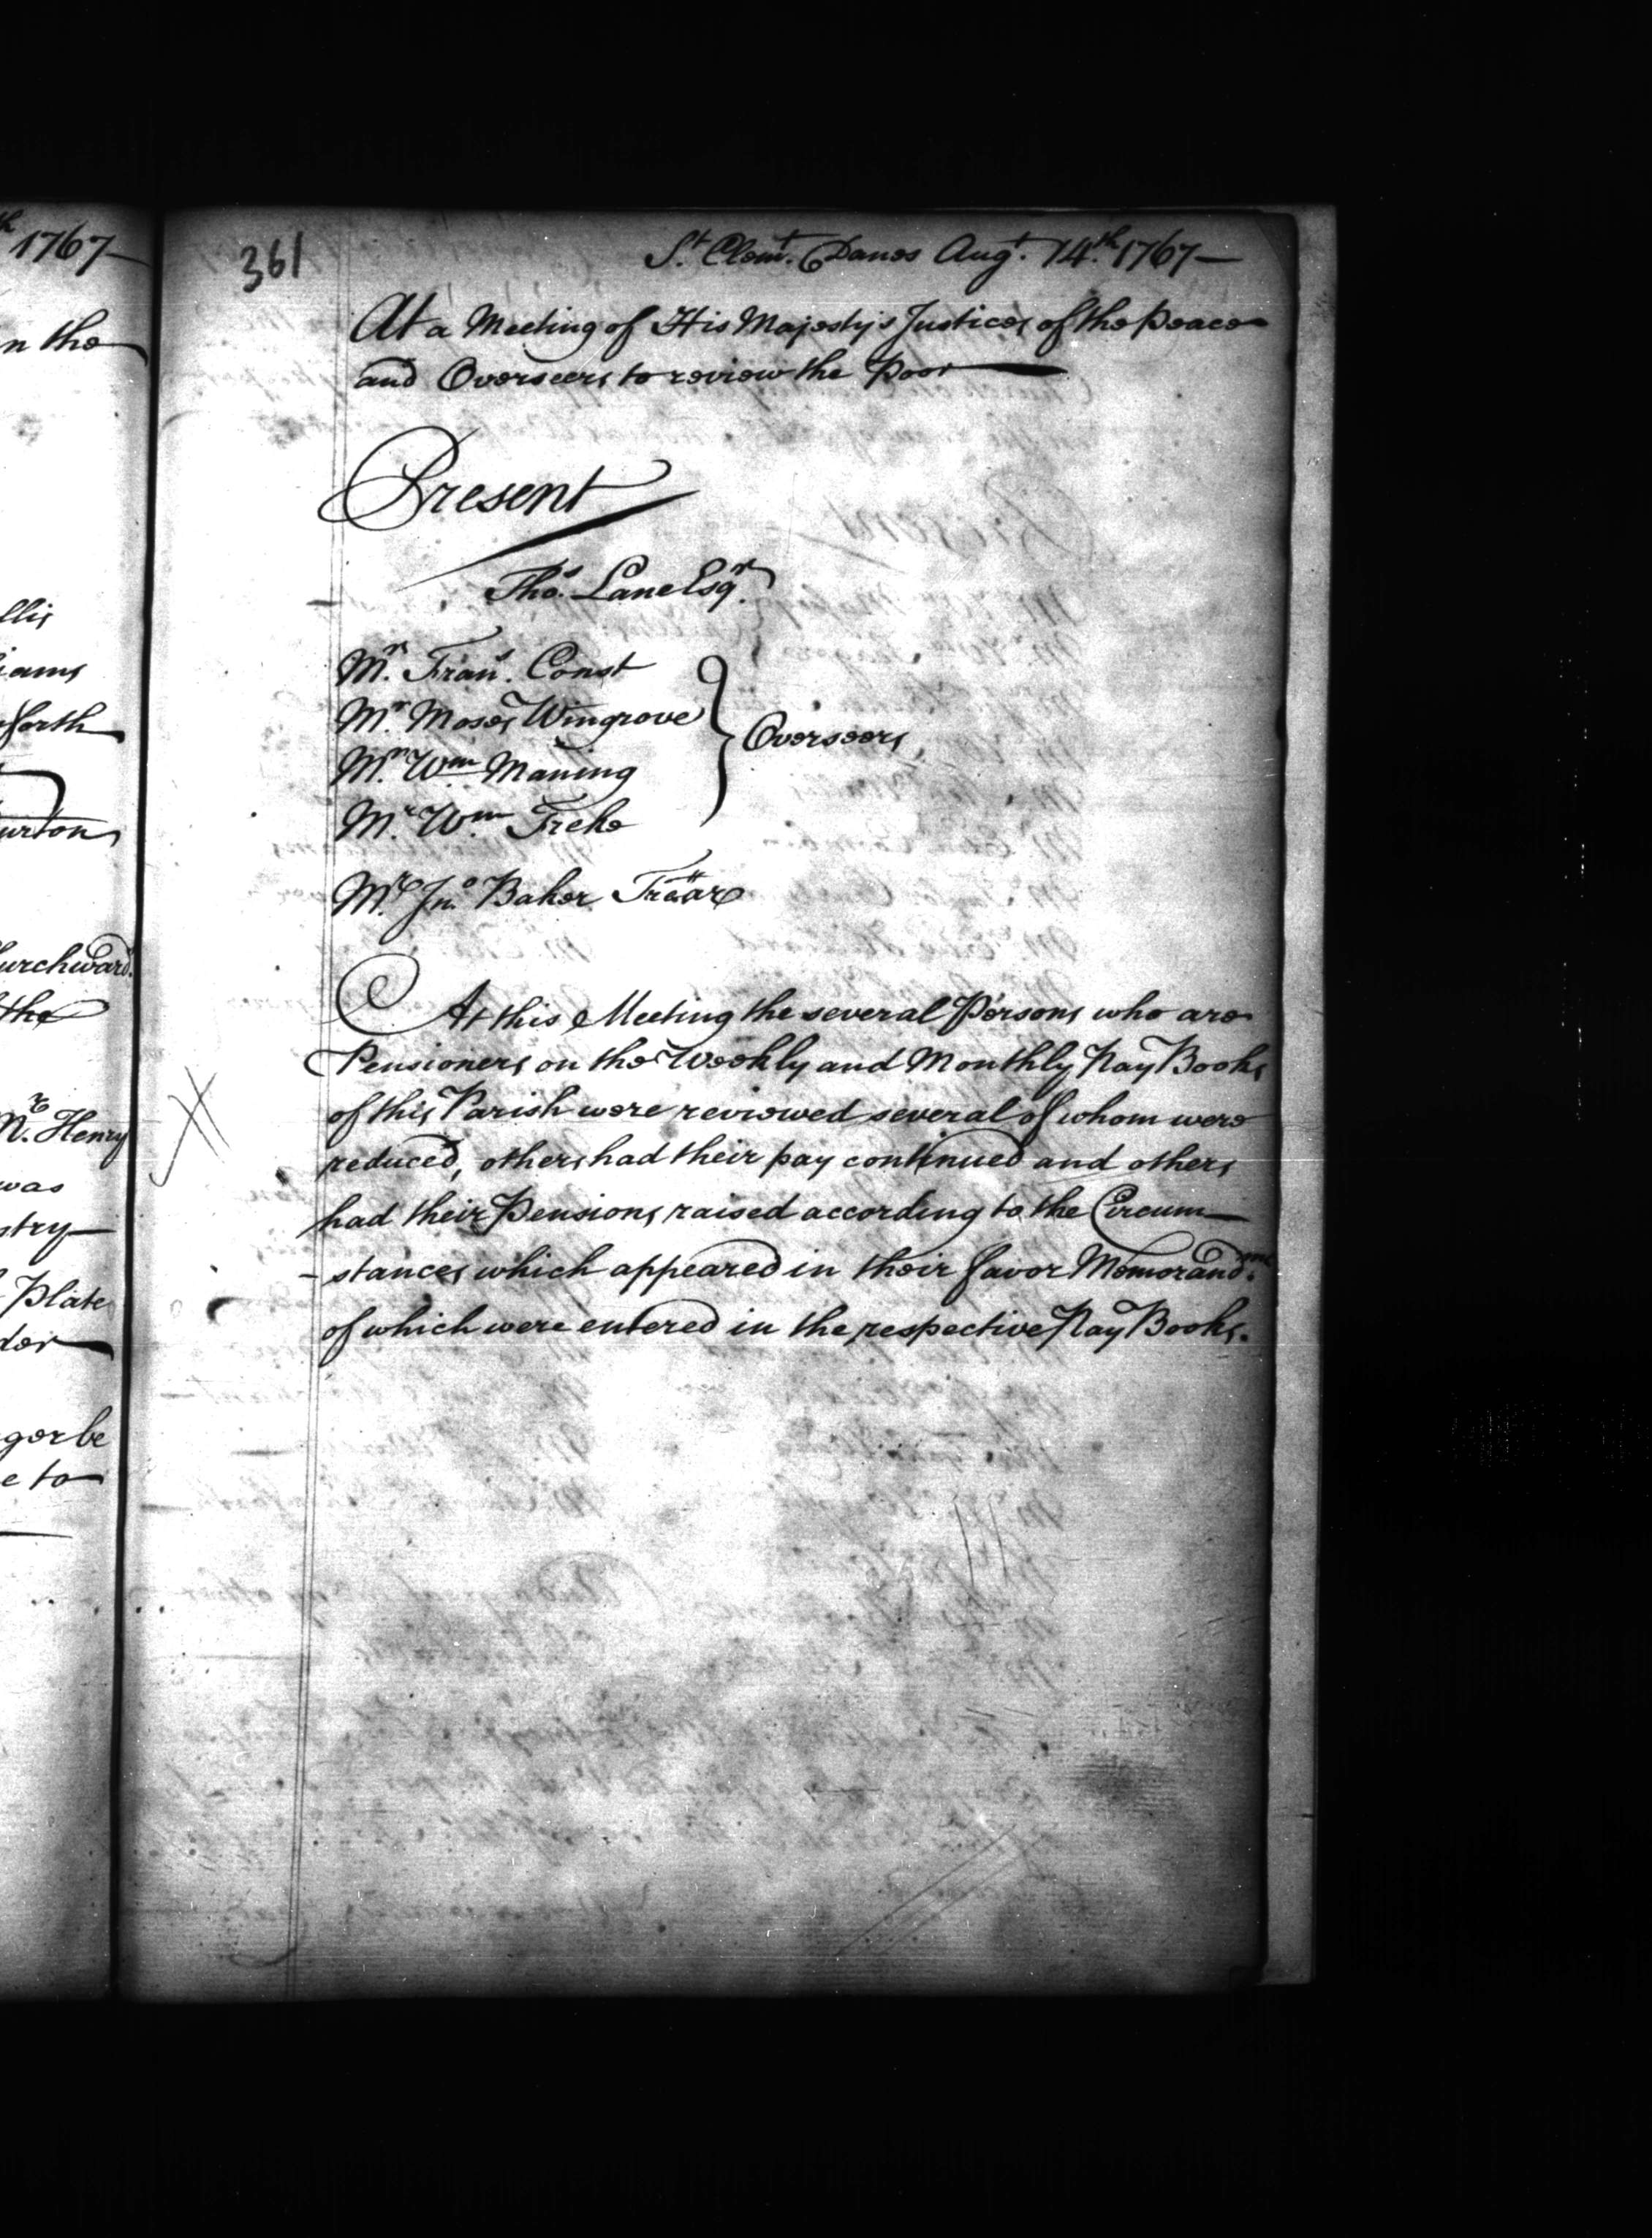 th 1767
n the
llis
iams
forth
urton
urchward.
the
Mr. Henry
was
stry
Plate
der
ger be
e to
361
St. Clemt. Danes Augt. 14th. 1767
At a Meeting of His Majesty's Justices of the Peace
and Overseers to review the Poor
Present
Thos. Lane Esqr.
Mr. Frans. Const
Mr. Moses Wingrove
Mr. Wm Maning
Mr. Wm Freke
Overseers
Mr. Jno. Baker
At this Meeting the several Persons who are
Pensioners on the Weekly and Monthly Pay Books
of this Parish were reviewed several of whom were
reduced, others had their pay continued and others
had their Pensions raised according to the Circum
- stances which appeared in their favor Memorandms.
of which were entered in the respective Pay Books.